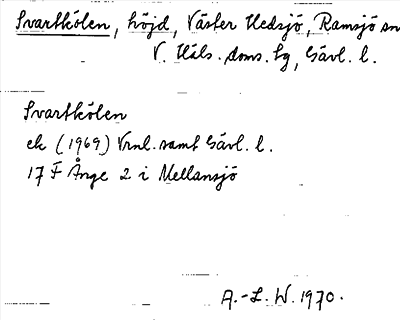 Svartkölen, höjd, Väster Hedsjö, Ramsjö sn
V. Häls. doms. sg, Gävl. l.
Svartkölen
ek (1969) Vrnl. samt Gävl. l.
17 F Ånge 2 i Mellansjö
A.-L. W. 1970.